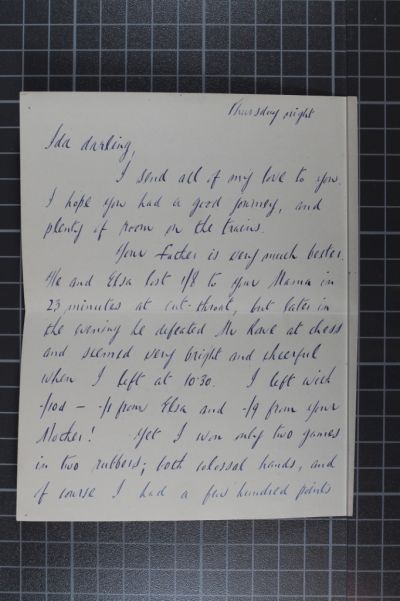 Thursday night
Ida darling,
I send all of my love to you.
I hope you had a good journey, and
plenty of room on the trains.
Your Father is very much better.
He and Elsa lost 1/8 to your Mama in
23 minutes at cut-throat, but later in
the evening he defeated Mr Rowe at chess
and seemed very bright and cheerful
when I left at 10.30. I left with
-/10d — -/1 from Elsa and -/9 from your
Mother! Yet I won only two games
in two rubbers; both colossal hands, and
of course I had a few hundred points